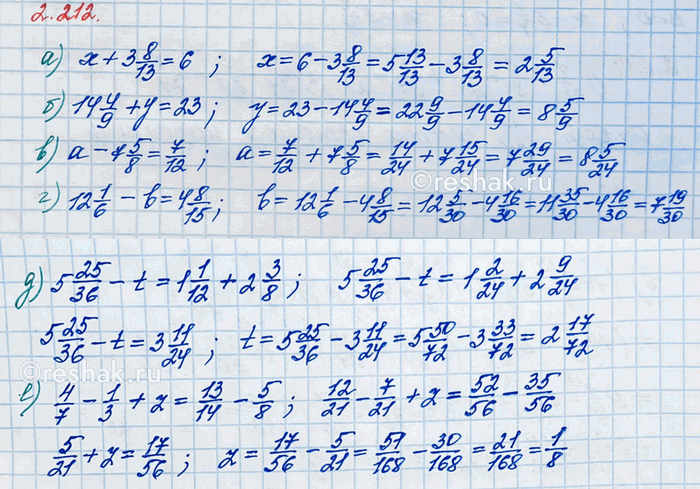 2.212.
а) x + 3 8/13 = 6 ; x = 6 − 3 8/13 = 5 13/13 − 3 8/13 = 2 5/13
б) 14 4/9 + y = 23 ; y = 23 − 14 4/9 = 22 9/9 − 14 4/9 = 8 5/9
в) a − 7 5/8 = 7/12 ; a = 7/12 + 7 5/8 = 14/24 + 7 15/24 = 7 29/24 = 8 5/24
©reshak.ru
г) 12 1/6 − b = 4 8/15 ; b = 12 1/6 − 4 8/15 = 12 5/30 − 4 16/30 = 11 35/30 − 4 16/30 = 7 19/30
д) 5 25/36 − t = 1 1/12 + 2 3/8 ; 5 25/36 − t = 1 2/24 + 2 9/24
5 25/36 − t = 3 11/24 ; t = 5 25/36 − 3 11/24 = 5 50/72 − 3 33/72 = 2 17/72
©reshak.ru
е) 4/7 − 1/3 + z = 13/14 − 5/8 ; 12/21 − 7/21 + z = 52/56 − 35/56
5/21 + z = 17/56 ; z = 17/56 − 5/21 = 51/168 − 30/168 = 21/168 = 1/8